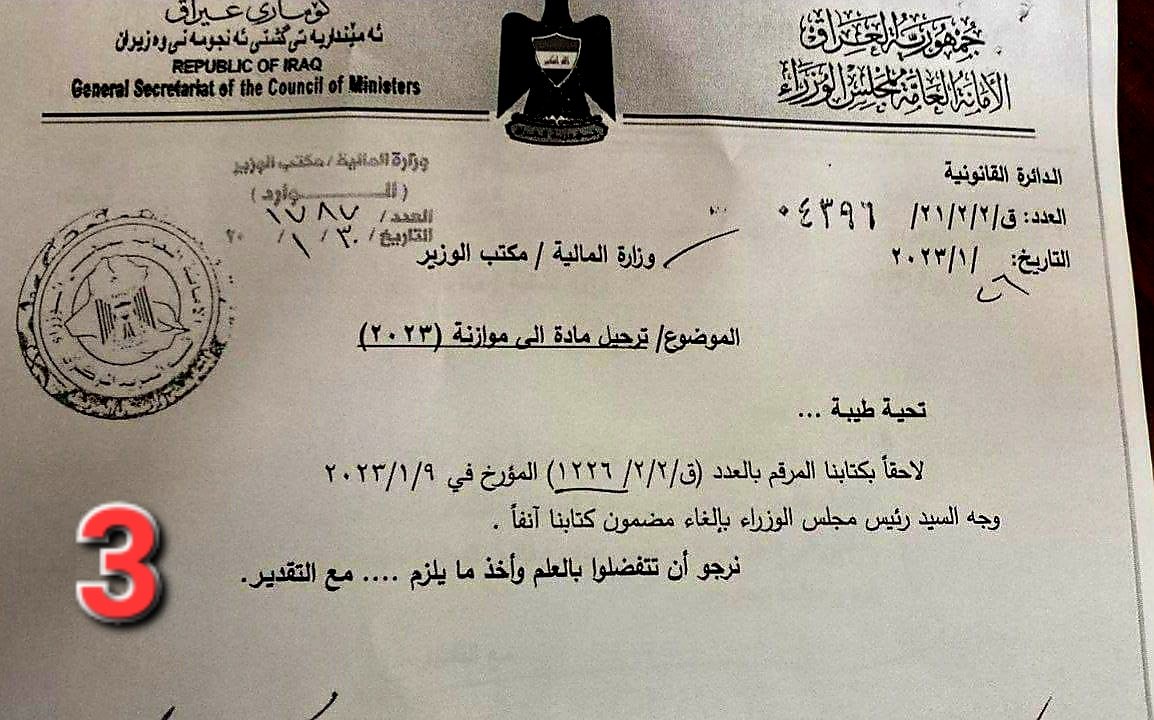 كۆماری عێراق
ئه مینداریه تی گشتی ئه نجومه نی وه زیران
REPUBLIC OF IRAQ
General Secretariat of the Council of Ministers
جمهورية العراق
الأمانة العامة لمجلس الوزراء
وزارة المالية / مكتب الوزير
( الـــــوارد )
العدد / ١٧٨٧
التاريخ / ٣٠ / ١ / ٢٠
الدائرة القانونية
العدد: ق/٢١/٢/٢/ ٠٤٣٩٦
التاريخ: ٢٦ /٢٠٢٣/١
وزارة المالية / مكتب الوزير
الموضوع/ ترحيل مادة الى موازنة (٢٠٢٣)
تحية طيبة ...
لاحقاً بكتابنا المرقم بالعدد (ق/٢/٢/ ١٢٢٦) المؤرخ في ٢٠٢٣/١/٩
وجه السيد رئيس مجلس الوزراء بإلغاء مضمون كتابنا آنفاً .
نرجو أن تتفضلوا بالعلم وأخذ ما يلزم .... مع التقدير.
3